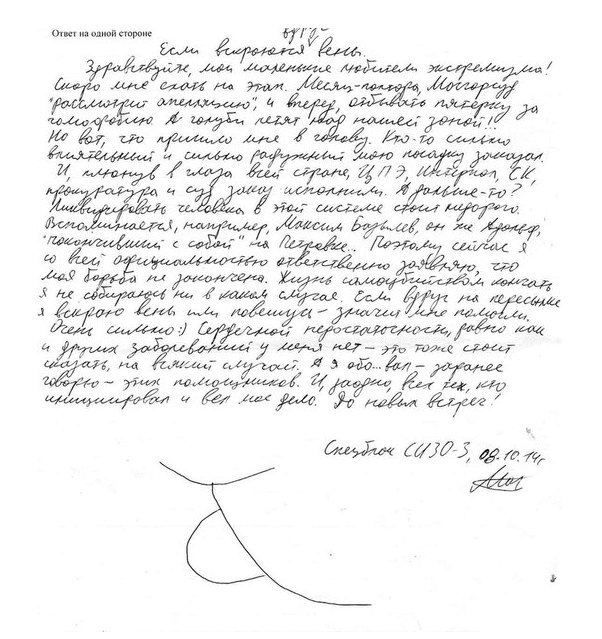 Ответ на одной стороне
вдруг
Если вскроются вены.
Здравствуйте, мои маленькие любители экстремизма!
Скоро мне ехать на этап. Месяц-полтора, Мосгорсуд
"рассмотрит апелляцию", и вперед, отбывать пятерку за
гомофобию. А голуби летят над нашей зоной!!
Но вот, что пришло мне в голову. Кто-то сильно
влиятельный и сильно радужный мою посадку заказал.
И, плюнув в глаза всей стране, ЦПЭ, Интерпол, СК,
прокуратура и суд заказ исполнили. А дальше-то?
Ликвидировать человека в этой системе стоит недорого.
Вспоминается, например, Максим Базылев, он же Адольф,
"покончивший с собой" на Петровке.. Поэтому сейчас я
со всей официальностью ответственно заявляю, что
моя борьба не закончена. Жизнь самоубийством кончать
я не собираюсь ни в каком случае. Если вдруг на пересылке
я вскрою вены или повешусь – значит мне помогли.
Очень сильно:) Сердечной недостаточности, равно как
и других заболеваний у меня нет – это тоже стоит
сказать, на всякий случай. А я обо...вал – заранее
говорю – этих помощников. И, заодно, всех тех, кто
инициировал и вел мое дело. До новых встреч!
Спецблок СИЗО-3, 08.10.14г